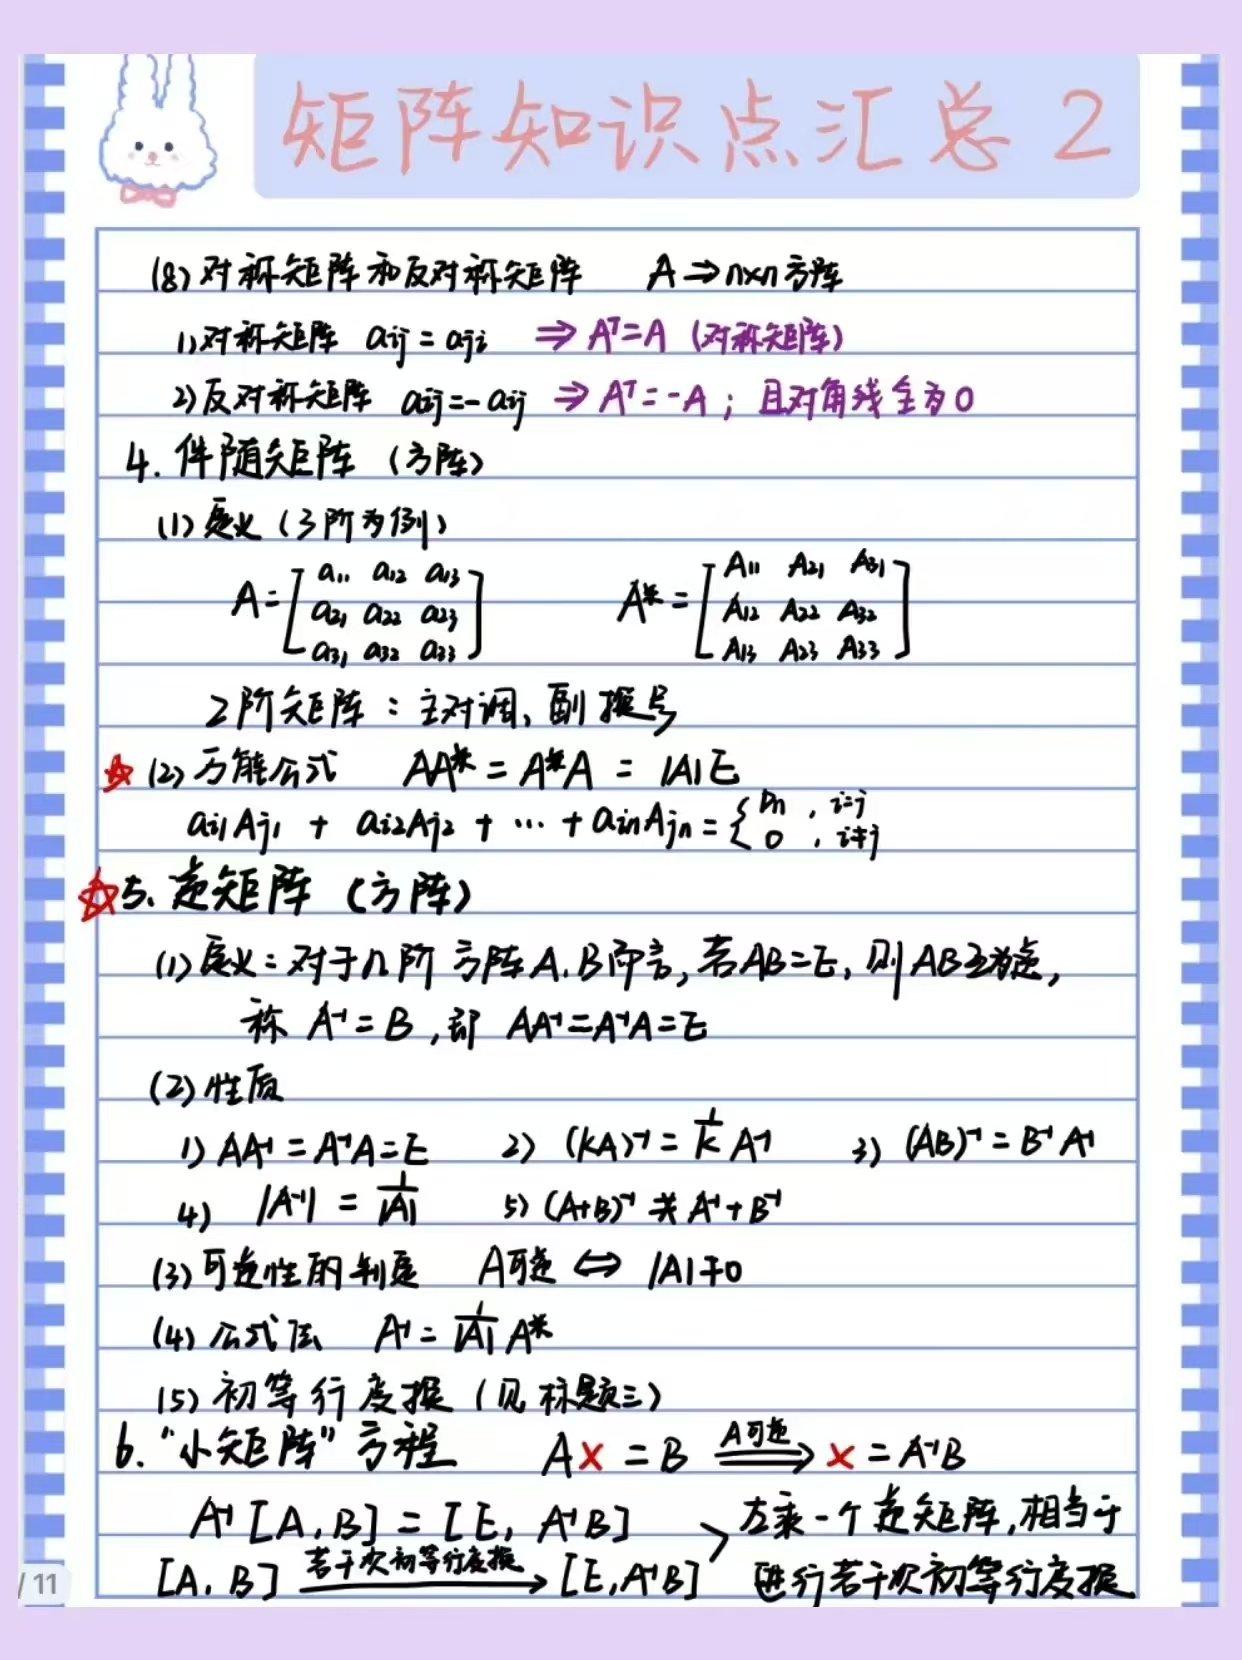 矩阵知识点汇总 2
(8) 对称矩阵和反对称矩阵 A⇒n×n方阵
1) 对称矩阵 aij = aji ⇒ Aᵀ=A (对称矩阵)
2) 反对称矩阵 aij=-aij ⇒ Aᵀ=-A; 且对角线全为0
4. 伴随矩阵 (方阵)
(1) 定义 (3阶为例)
A=[a11 a12 a13
a21 a22 a23
a31 a32 a33]
A*=[A11 A21 A31
A12 A22 A32
A13 A23 A33]
2阶矩阵:主对调,副换号
(2) 万能公式 AA* = A*A = |A|E
ai1Aj1 + ai2Aj2 + … + ainAjn = {Dn, i=j
0, i≠j
5. 逆矩阵 (方阵)
(1) 定义:对于n阶方阵A.B而言,若AB=E,则AB互为逆,
称 A⁻¹=B,即 AA⁻¹=A⁻¹A=E
(2) 性质
1) AA⁻¹=A⁻¹A=E 2) (kA)⁻¹ = 1/k A⁻¹ 3) (AB)⁻¹ = B⁻¹A⁻¹
4) |A⁻¹| = 1/|A| 5) (A+B)⁻¹ ≠ A⁻¹+B⁻¹
(3) 可逆性的判定 A可逆 ⇔ |A|≠0
(4) 公式法 A⁻¹ = 1/|A| A*
(5) 初等行变换 (见标题三)
6. “小矩阵”方程 AX = B A可逆⇒ X = A⁻¹B
A⁻¹[A, B] = [E, A⁻¹B] 左乘一个逆矩阵,相当于
[A, B] 若干次初等行变换→ [E, A⁻¹B] 进行若干次初等行变换
/ 11